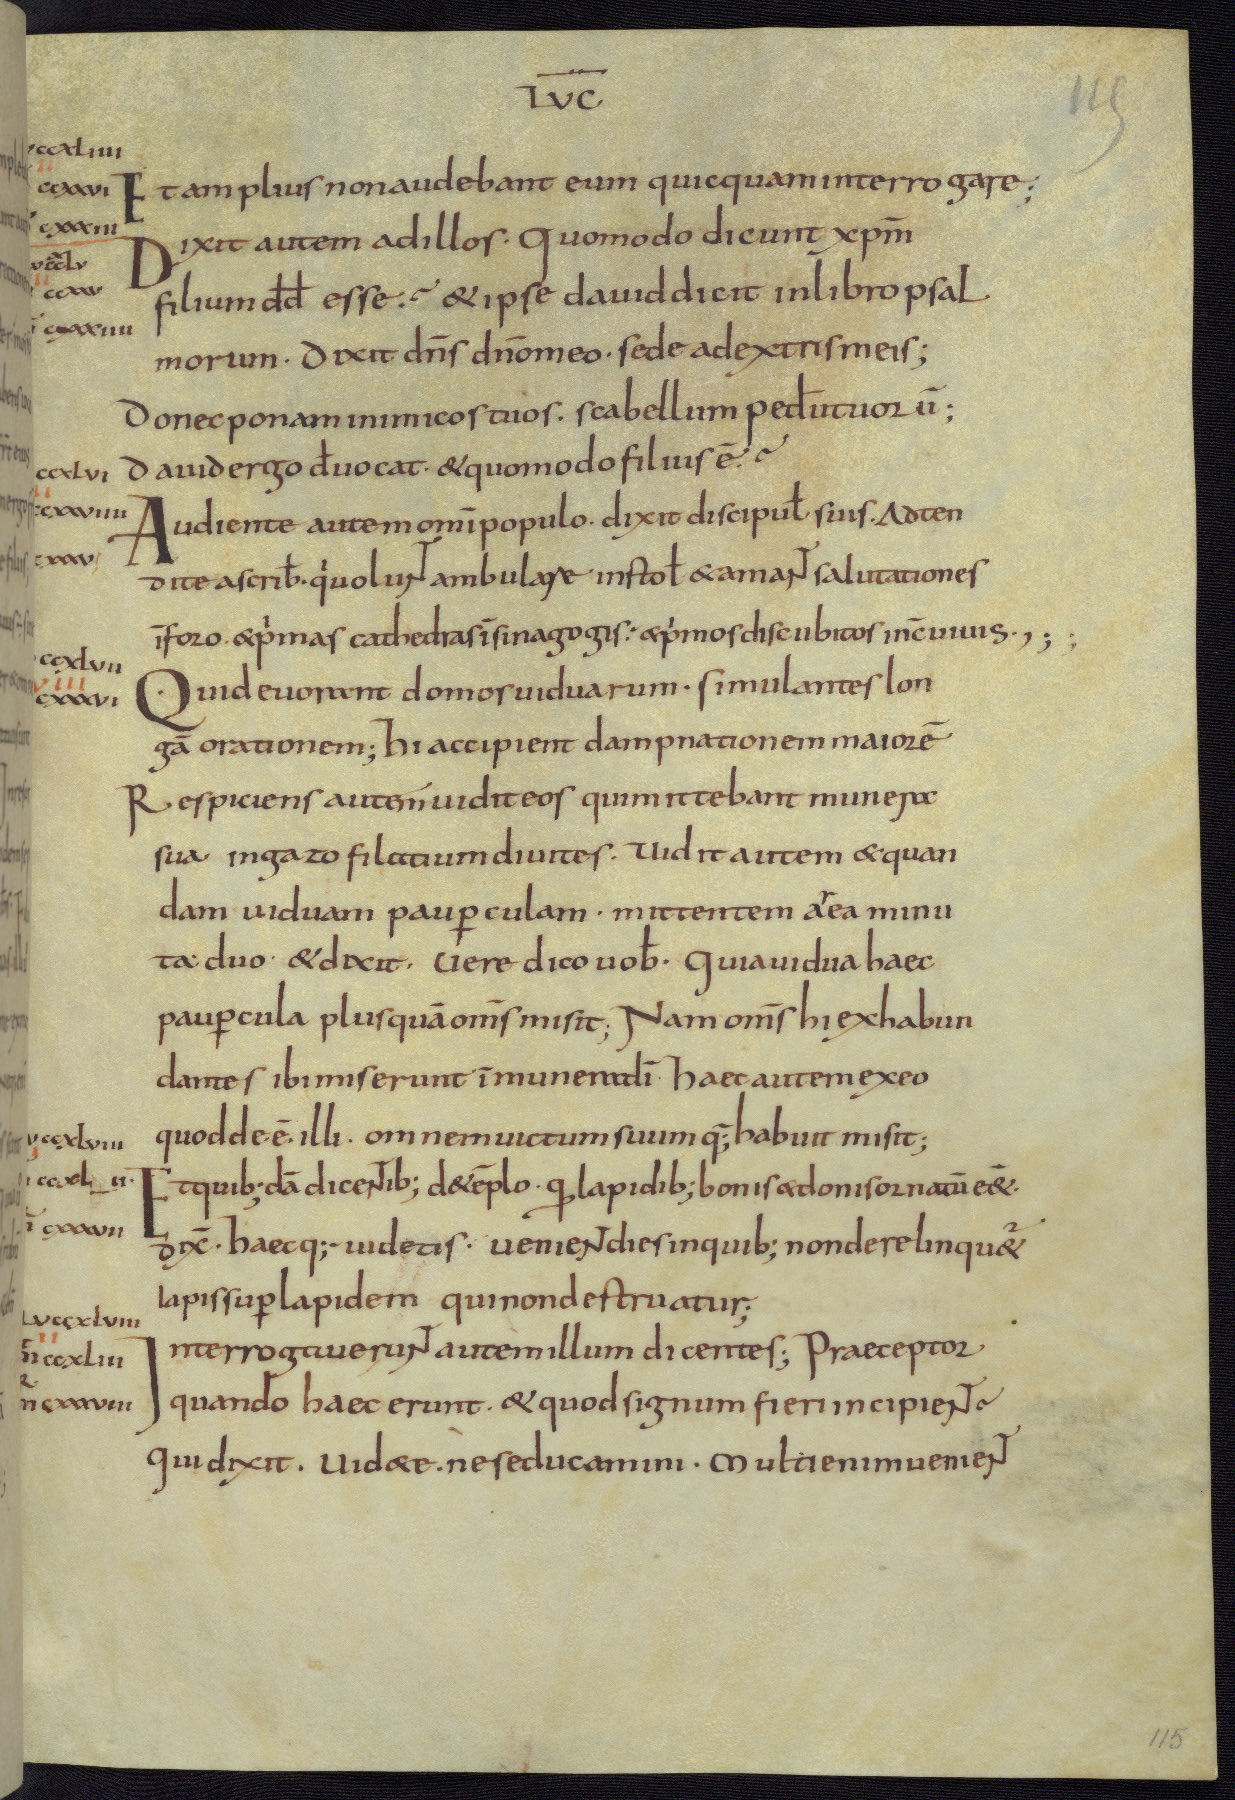 LVC
115
ccxliiii
ccxxvi
cxxxiii
Et amplius non audebant eum quicquam interrogare;
Dixit autem ad illos· Quomodo dicunt xpm̄
cclv
ccxxv
cxxxiiii
filium dd̄ esse.? & ipse dauid dicit in libro psal
morum· Dixit dn̄s dn̄o meo· sede a dextris meis;
Donec ponam inimicos tuos. scabellum ped̄ tuorū;
ccxlvi
Dauid ergo d̄ uocat· & quomodo filius ē.?
ccxxviiii
Audiente autem omī populo· dixit discipul̄ suis· Adten
cxxxv
dite a scrib̄· qi uolunt ambulare in stol̄ & amant salutationes
ī foro· & pimas cathedras ī sinagogis· & pimos discubitos in c̄uiuis·,;;
ccxlvii
cxxxvi
Qui deuorant domos uiduarum· simulantes lon
gā orationem; hi accipient dampnationem maiorē
Respiciens autem uidit eos qui mittebant munera
sua in gazofilatium diuites· Uidit autem & quan
dam uiduam pauꝑculam· mittentem aerea minu
ta duo· & dixit· Uere dico uob̄· Quia uidua haec
pauꝑcula plus quā om̄s misit; Nam om̄s hi ex habun
dantes ibi miserunt ī munera dī· haec autem ex eo
ccxlviii
quod de·ē· illi· omnem uictum suum q̄; habuit misit;
Et quib; dā dicentib; de tēplo· qd lapidib; bonis & donis ornatū e&̄·
cxxxvii
Dix̄· haec q;· uidetis· uenient dies in quib; non derelinqu&ur
lapis super lapidem qui non destruatur;
LV ccxlviiii
ccxliii
Interrogauerunt autem illum dicentes; Praeceptor
cxxxviii
quando haec erunt· & quod signum fieri incipient?
Qui dixit· Uid&e· ne seducamini· Multi enim uenient
115